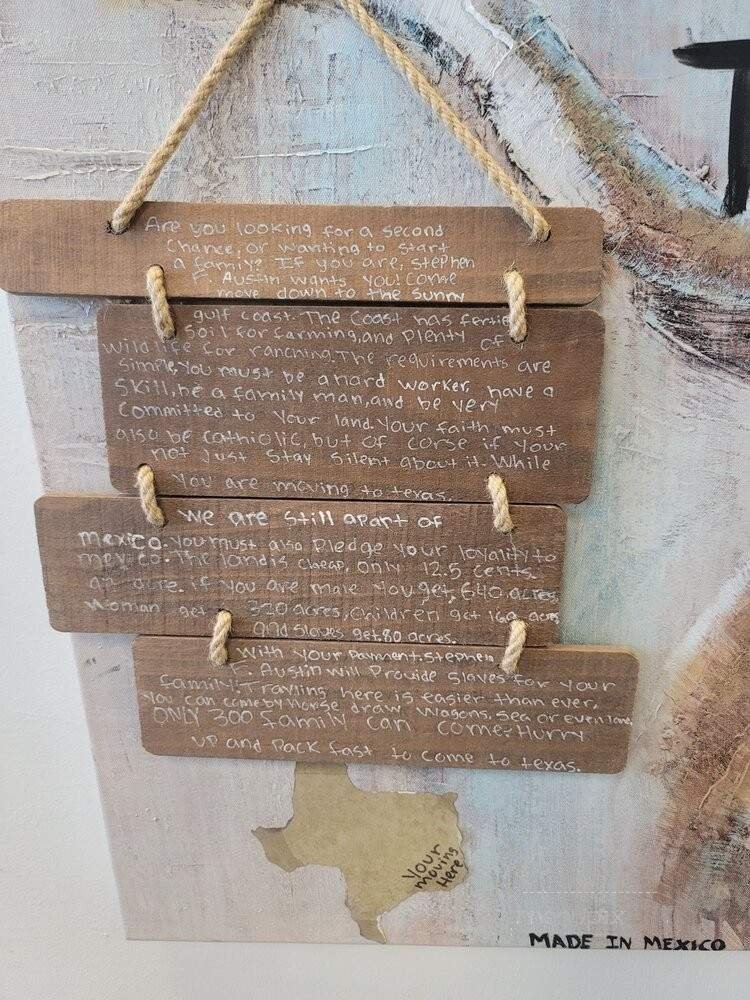 Are you looking for a second
Chance, or wanting to start
a family? If you are, Stephen
F. Austin wants you! Come
move down to the sunny
gulf coast. The coast has fertile
Soil for farming, and Plenty of
wild life for ranching. The requirements are
simple, you must be a hard worker, have a
Skill, be a family man, and be very
Committed to Your land. Your faith must
also be catholic, but of corse if your
not Just Stay Silent about it. While
You are moving to texas.
we are Still apart of
mexico. you must also Pledge your loyality to
mexico. The land is cheap, only 12.5 cents.
an acre. if you are male You get, 640 acres,
Woman get 320 acres, Children get 160 acres
and slaves get. 80 acres.
With your Payment. Stephen
F. Austin will Provide slaves for your
family! Travling here is easier than ever,
You can come by horse draw. Wagons, Sea or even land
ONLY 300 family can come. Hurry
up and Pack fast to come to texas.
Your
moving
Here
MADE IN MEXICO